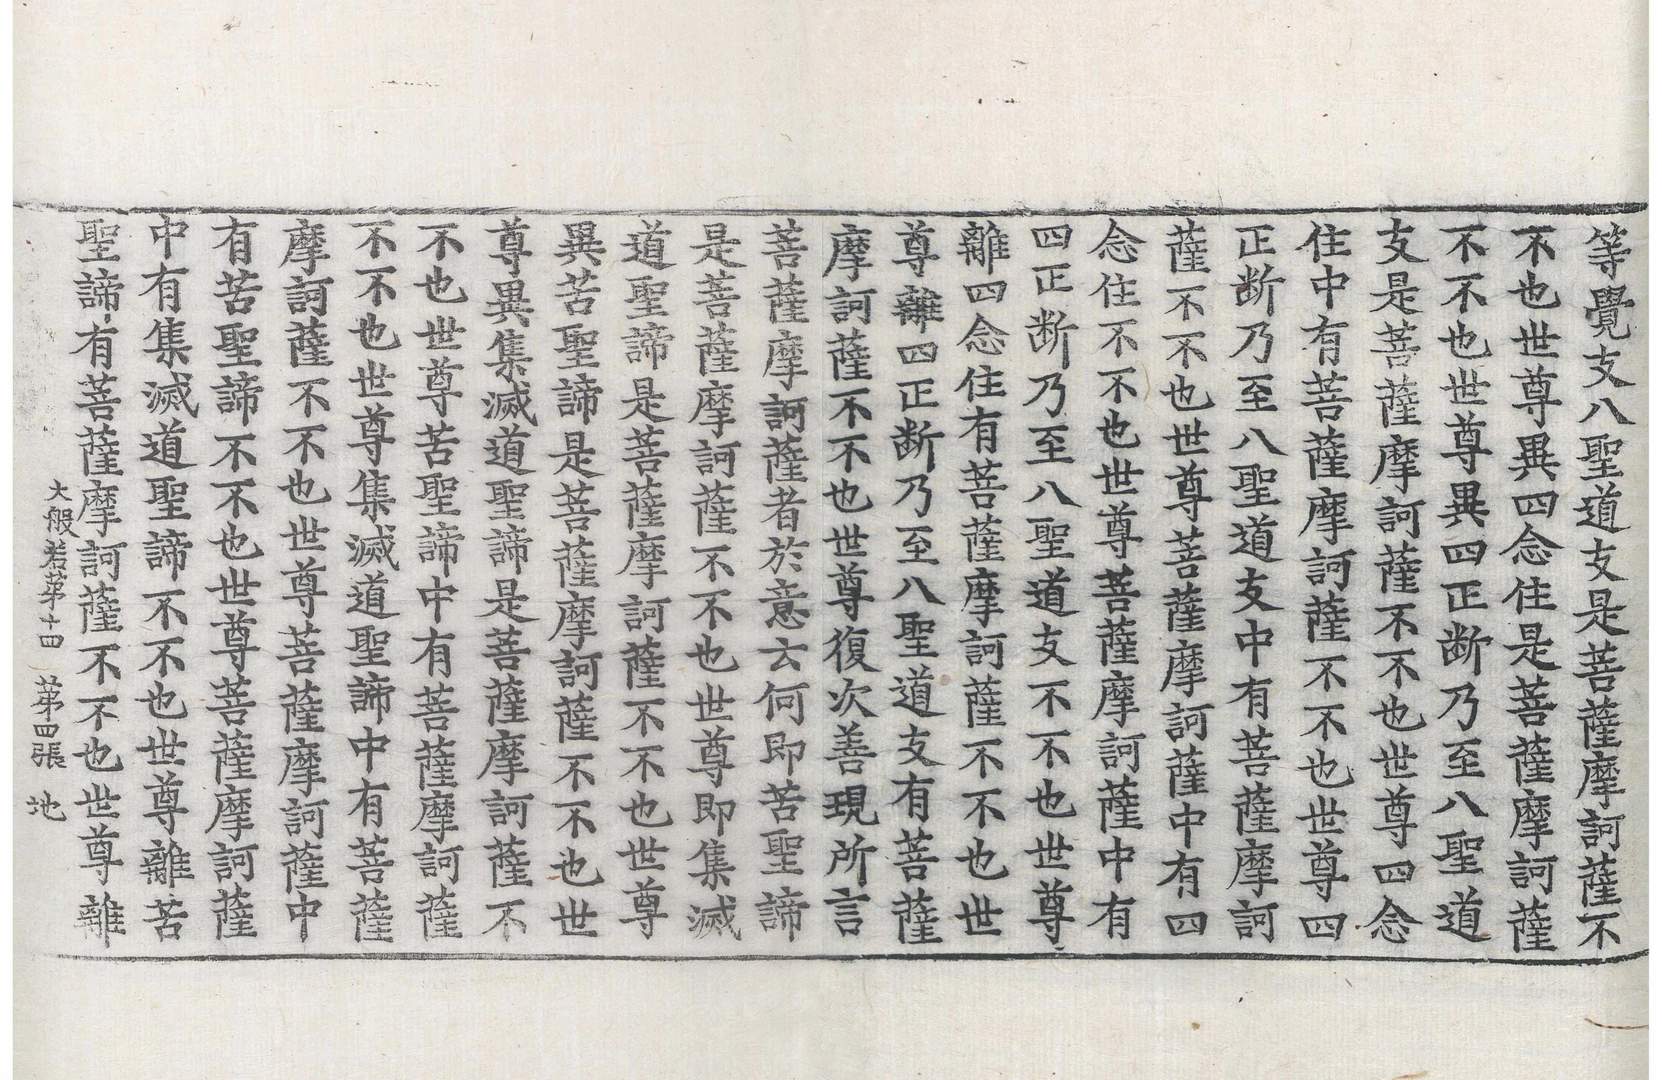 等覺支八聖道支是菩薩摩訶薩不
不也世尊異四念住是菩薩摩訶薩
不不也世尊異四正断乃至八聖道
支是菩薩摩訶薩不不也世尊四念
住中有菩薩摩訶薩不不也世尊四
正断乃至八聖道支中有菩薩摩訶
薩不不也世尊菩薩摩訶薩中有四
念住不不也世尊菩薩摩訶薩中有
四正断乃至八聖道支不不也世尊
離四念住有菩薩摩訶薩不不也世
尊離四正断乃至八聖道支有菩薩
摩訶薩不不也世尊復次善現所言
菩薩摩訶薩者於意云何即苦聖諦
是菩薩摩訶薩不不也世尊即集滅
道聖諦是菩薩摩訶薩不不也世尊
異苦聖諦是菩薩摩訶薩不不也世
尊異集滅道聖諦是菩薩摩訶薩不
不也世尊苦聖諦中有菩薩摩訶薩
不不也世尊集滅道聖諦中有菩薩
摩訶薩不不也世尊菩薩摩訶薩中
有苦聖諦不不也世尊菩薩摩訶薩
中有集滅道聖諦不不也世尊離苦
聖諦有菩薩摩訶薩不不也世尊離
大般若苐十四 苐四張 地